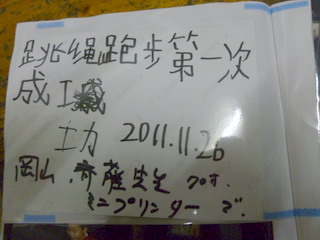 跳绳跑步第一次
成
功 2011.11.26
岡山.齐薩先生
ミニプリンターで.